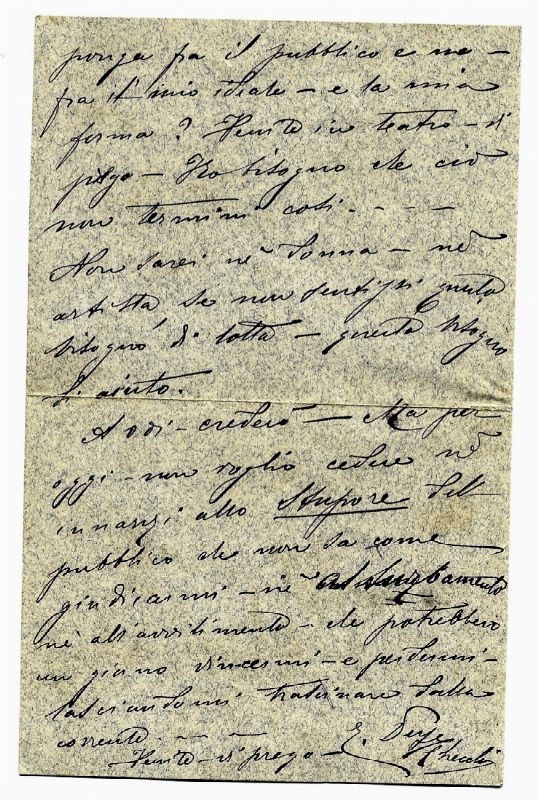 ponga fra il pubblico e me –
fra il mio ideale – e la mia
forma? Venite in teatro – vi
prego – Ho bisogno che ciò
non termini così. – – –
Non sarei nè donna – nè
artista se non sentissi questo
bisogno di lotta – questo bisogno
d'aiuto.
crederò – Ma per
oggi – non voglio cedere nè
innanzi allo stupore del
pubblico che non sa come
giudicarmi – nè al
nè all'avvilimento – che potrebbero
un giorno vincermi – e perdermi –
lasciandomi trascinare dalla
corrente – – –
Venite – vi prego – E. Duse
Checchi